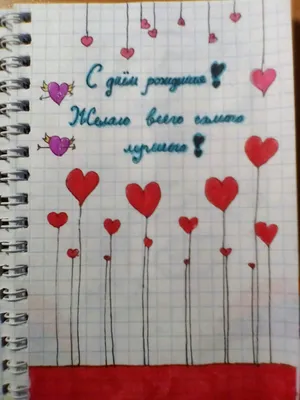 С днём рождения!
Желаю всего самого
лучшего!